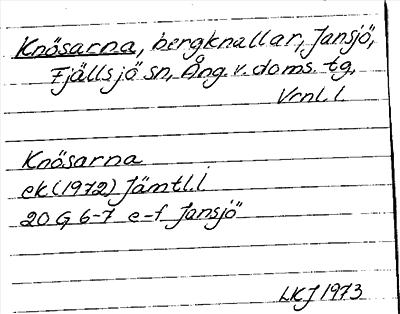 Knösarna, bergknallar, Jansjö,
Fjällsjö sn, Ång. v. doms. tg,
Vrnl. l.
Knösarna
ek (1972) Jämtl. l
20 G 6-7 e-f Jansjö
LKJ 1973